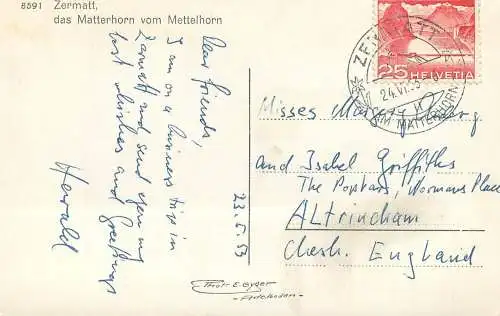 8591 Zermatt,
das Matterhorn vom Mettelhorn
Dear friends,
I am on a business trip in
Zermatt and send you my
best wishes and Greetings
Harald
23.6.53
25 HELVETIA
ZERMATT
24.VI.53
AM MATTERHORN
Misses
and Isabel Griffiths
The Poplars, Normans Place
ALtrincham
Chesh. England
Phot. E. Gyger
Adelboden